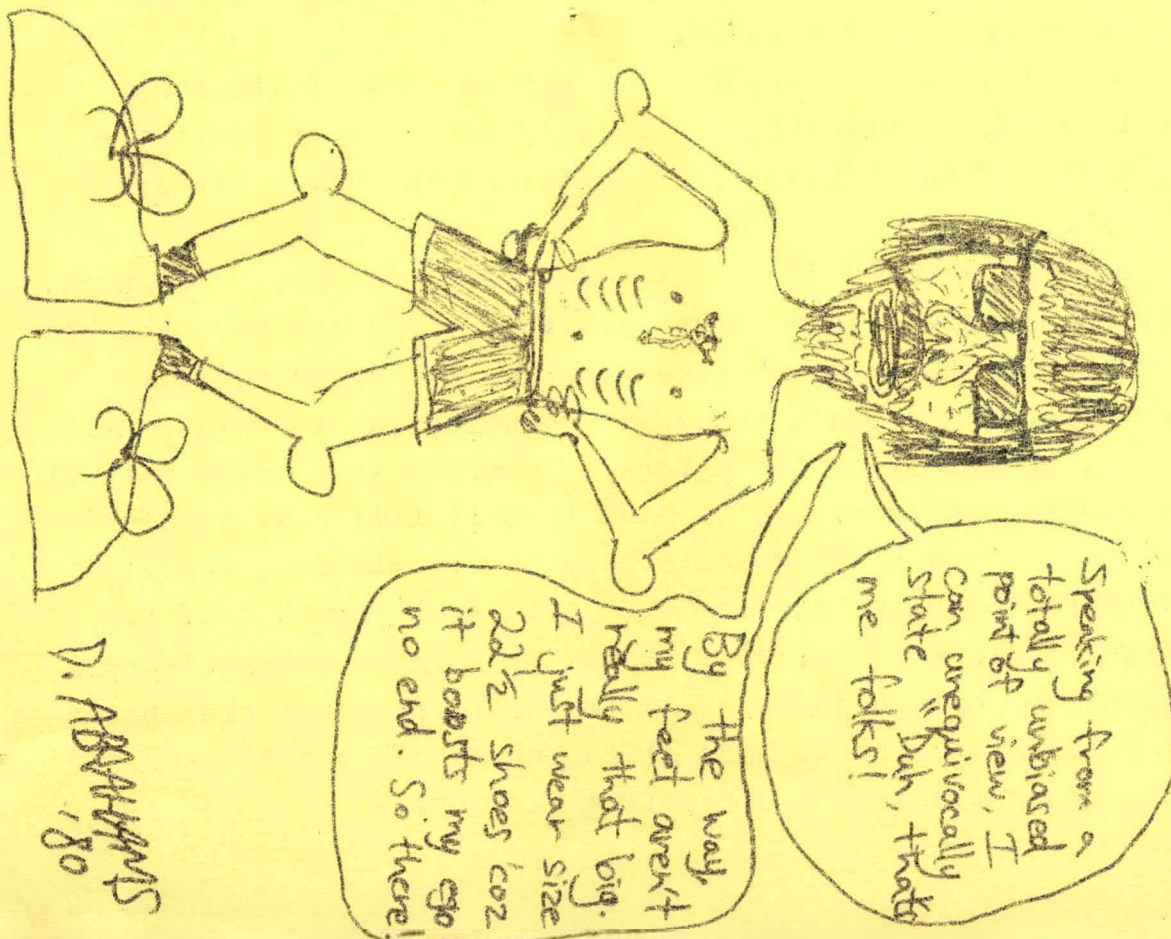 Speaking from a
totally unbiased
point of view, I
can unequivocally
state "Duh, thats
me folks!
By the way,
my feet aren't
really that big.
I just wear size
22½ shoes 'coz
it boosts my ego
no end. So there!
D. ABRAHAMS
'80